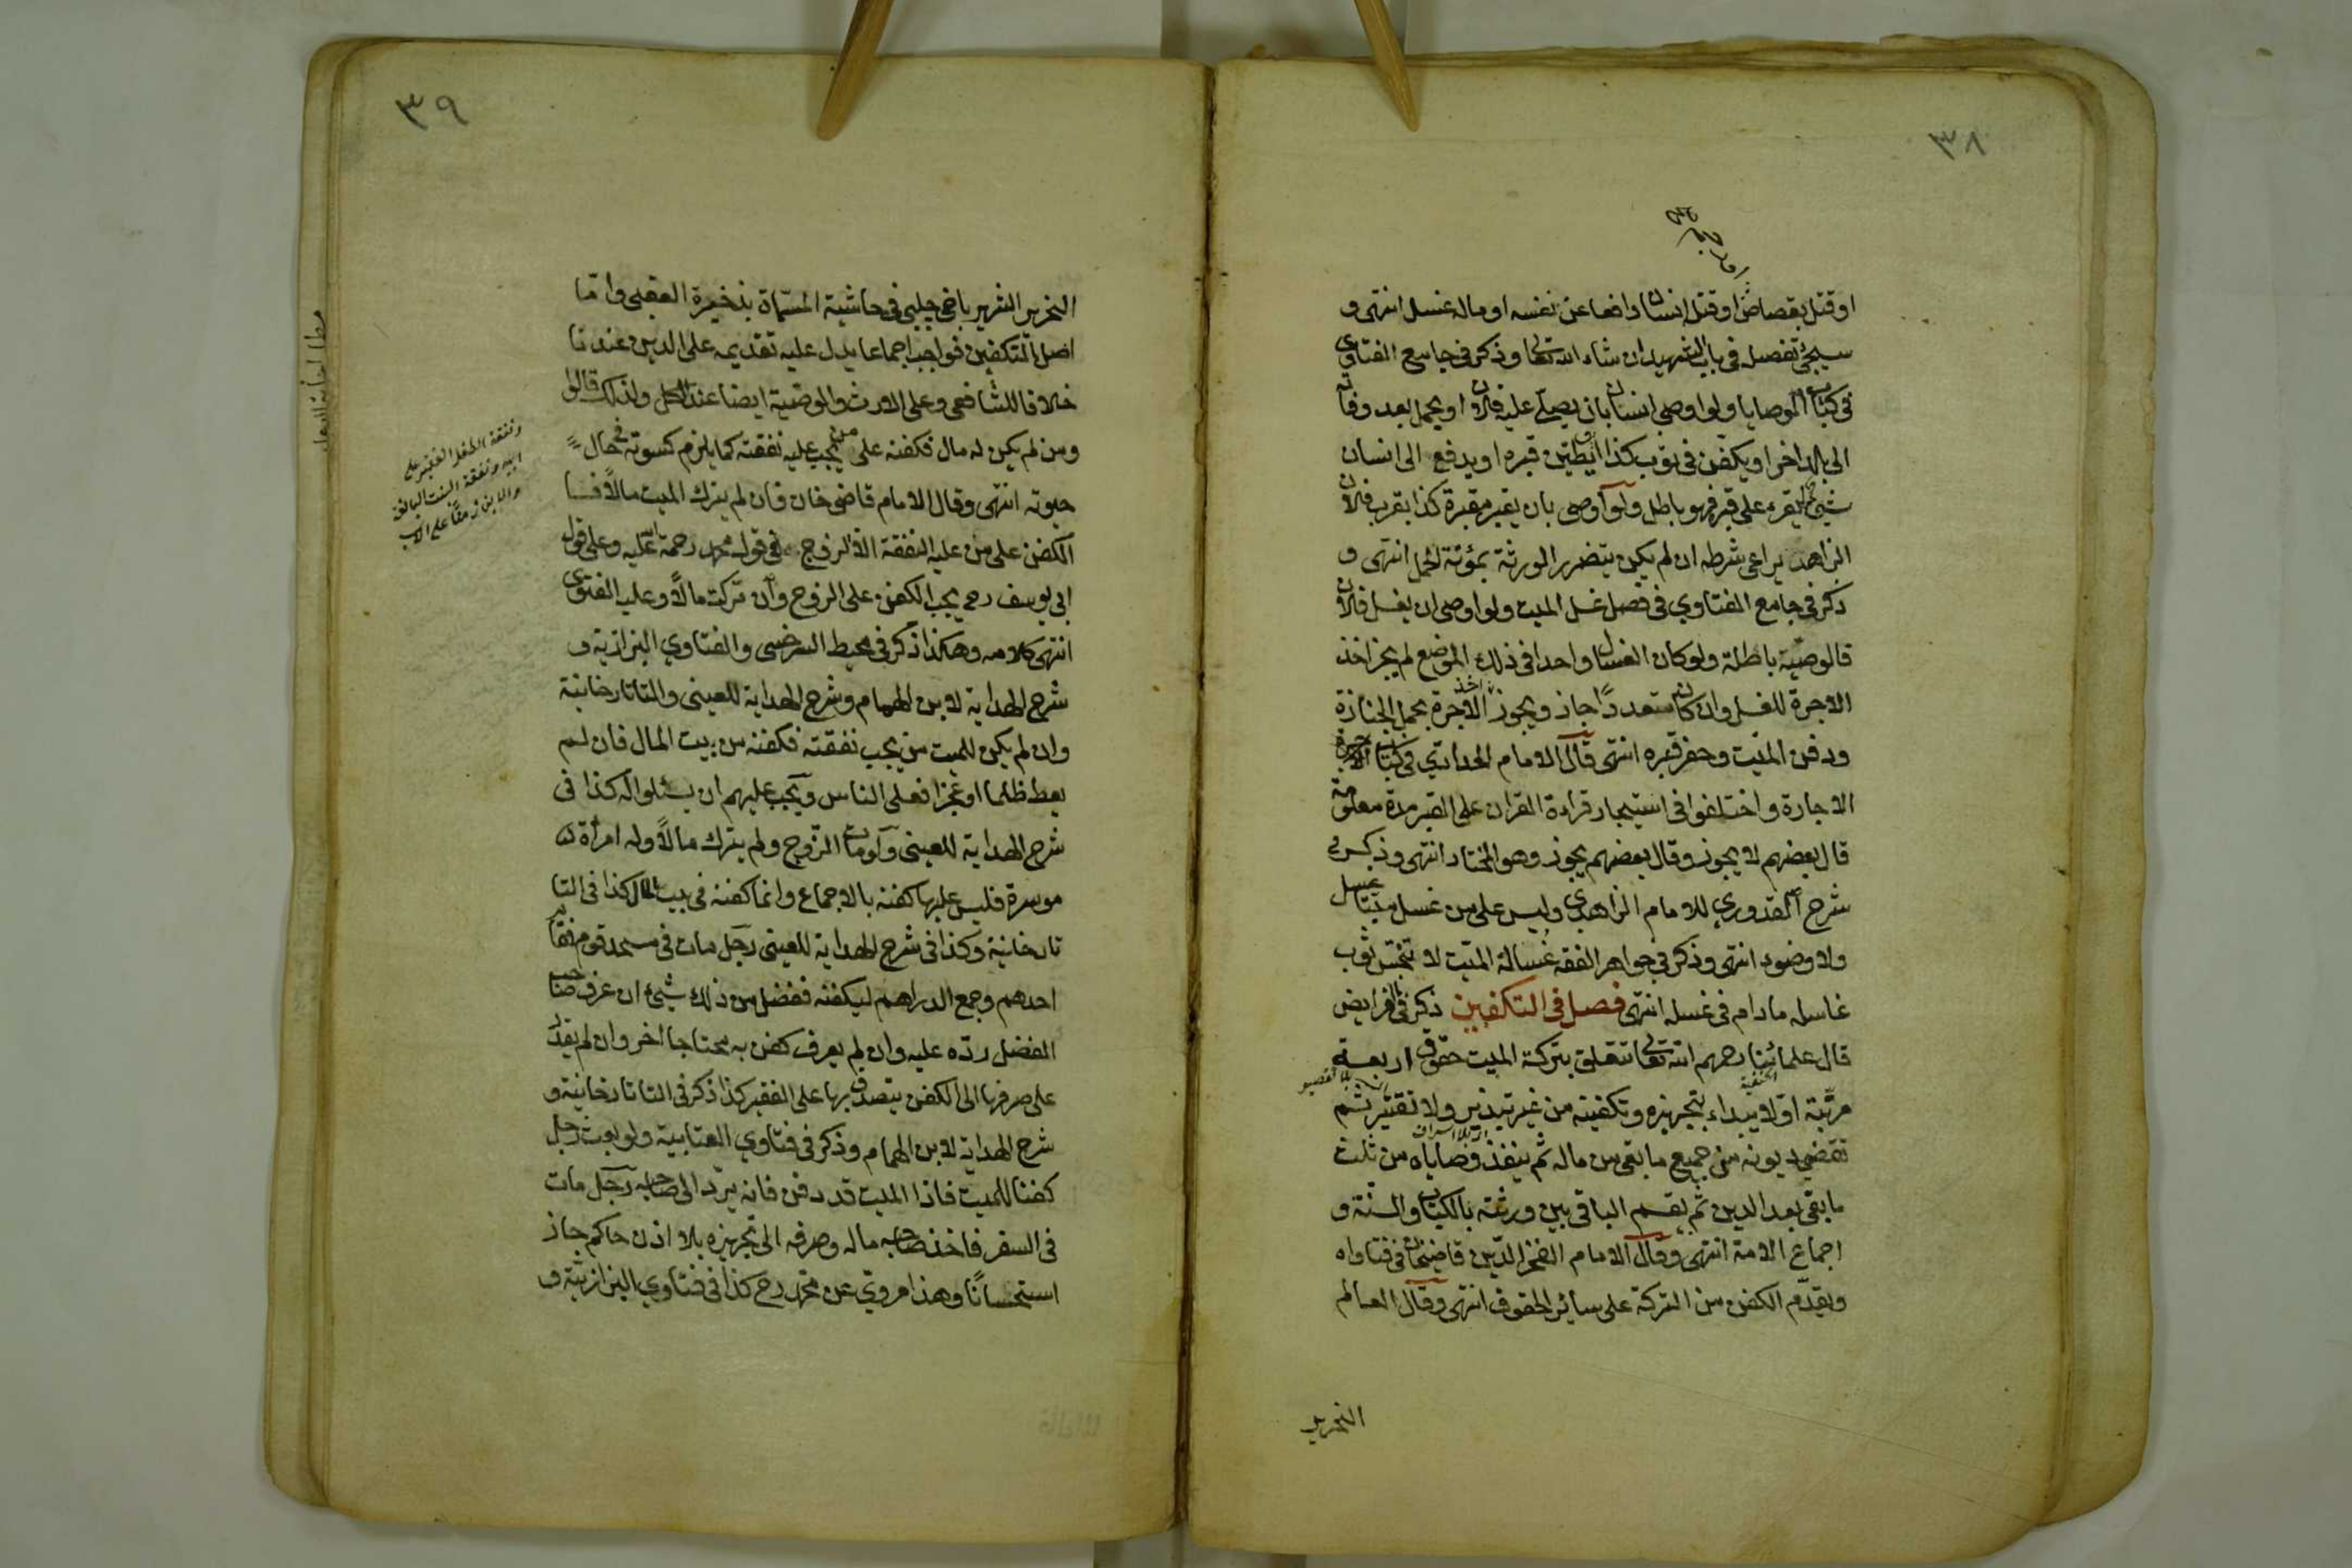 ٣٨
او قتل بقصاص او قتل انسانا دافعا عن نفسه او ماله غسل انتهى و
سيجئ تفصيله في باب الشهيد ان شاء الله تعالى وذكر في جامع الفتاوى
في كتاب الوصايا ولو اوصى انسان بان يصلي عليه فلان او يحمل بعد وفاته
الى بلد اخر او يكفن في ثوب كذا او يطين قبره او يدفع الى انسان
شيئ ليقرء على قبره فهو باطل ولو اوصى بان يقبر مقبرة كذا بقرب فلان
الزاهد يراعى شرطه ان لم يكن يتضرر الورثة بمؤنة الحمل انتهى و
ذكر في جامع الفتاوي في فصل غسل الميت ولو اوصى ان يغسل فلان
فالوصية باطلة ولو كان الغسال واحدا في ذلك الموضع لم يجز اخذ
الاجرة للغسل وان كان متعددًا جاز ويجوز اخذ الاجرة بحمل الجنازة
ودفن الميت وحفر قبره انتهى قال الامام الحدادي في كتاب
الاجارة واختلفوا في استيجار قراءة القران على القبر مدة معلومة
قال بعضهم لا يجوز وقال بعضهم يجوز وهو المختار انتهى وذكر في
شرح القدوري للامام الزاهدي وليس على من غسل ميتا غسل
ولا وضوء انتهى وذكر في جواهر الفقه غسالة الميت لا تنجس ثوب
غاسله مادام في غسله انتهى فصل في التكفين ذكر في الفرايض
قال علمائنا رحمهم الله تعالى تتعلق بتركة الميت حقوق اربعة
مرتبة اولا يبداء بتجهيزه وتكفينه من غير تبذير ولا تقتير ثم
تقضى ديونه من جميع ما بقى من ماله ثم ينفذ وصاياه من ثلث
ما بقى بعد الدين ثم يقسم الباقي بين ورثته بالكتاب والسنة و
اجماع الامة انتهى وقال الامام الفخر الدين قاضيخان في فتاواه
ويقدم الكفن من التركة على سائر الحقوق انتهى وقال العالم
النحرير
٣٩
النحرير الشهير باخي چلبي في حاشية المسماة بذخيرة العقبى واما
اصل التكفين فواجب اجماعا يدل عليه تقديمه على الدين عندنا
خلافا للشافعي وعلى الارث والوصية ايضا عند الكل ولذلك قالوا
ومن لم يكن له مال فكفنه على من يجب عليه نفقته كما يلزم كسوته في حال
حيوته انتهى وقال الامام قاضي خان فان لم يترك الميت مالاً
الكفن على من عليه النفقة الا الزوج في قول محمد رحمة الله عليه وعلى قول
ابي يوسف رح يجب الكفن على الزوج وان تركت مالاً وعليه الفتوى
انتهى كلامه وهكذا ذكر في محيط السرخسي والفتاوي البزازية و
شرح الهداية لابن الهمام وشرح الهداية للعيني والتاتارخانية
وان لم يكن للميت من يجب نفقته فكفنه من بيت المال فان لم
يعط ظلما او عجزا فعلى الناس ويجب عليهم ان يسئلوا له كذا في
شرح الهداية للعيني ولو مات الزوج ولم يترك مالاً وله امرأة
موسرة فليس عليها كفنه بالاجماع وانما كفنه في بيت المال كذا في التا
تارخانية وكذا في شرح الهداية للعيني رجل مات في مسجد قوم فقام
احدهم وجمع الدراهم ليكفنه ففضل من ذلك شيئ ان عرف صاحب
الفضل رده عليه وان لم يعرف كفن به محتاجا اخر وان لم يقدر
على صرفها الى الكفن يتصدق بها على الفقير كذا ذكر في التاتارخانية و
شرح الهداية لابن الهمام وذكر في فتاوي العتابية ولو بعث رجل
كفنا للميت فاذا الميت قد دفن فانه يرد الى صاحبه رجل مات
في السفر فاخذ صاحبه ماله وصرفه الى تجهيزه بلا اذن حاكم جاز
استحسانًا وهذا مروي عن محمد رح كذا في فتاوي البزازية و
ونفقة الطفل الفقير على
ابيه ونفقة البنت البالغة
والابن زمنًا على الاب